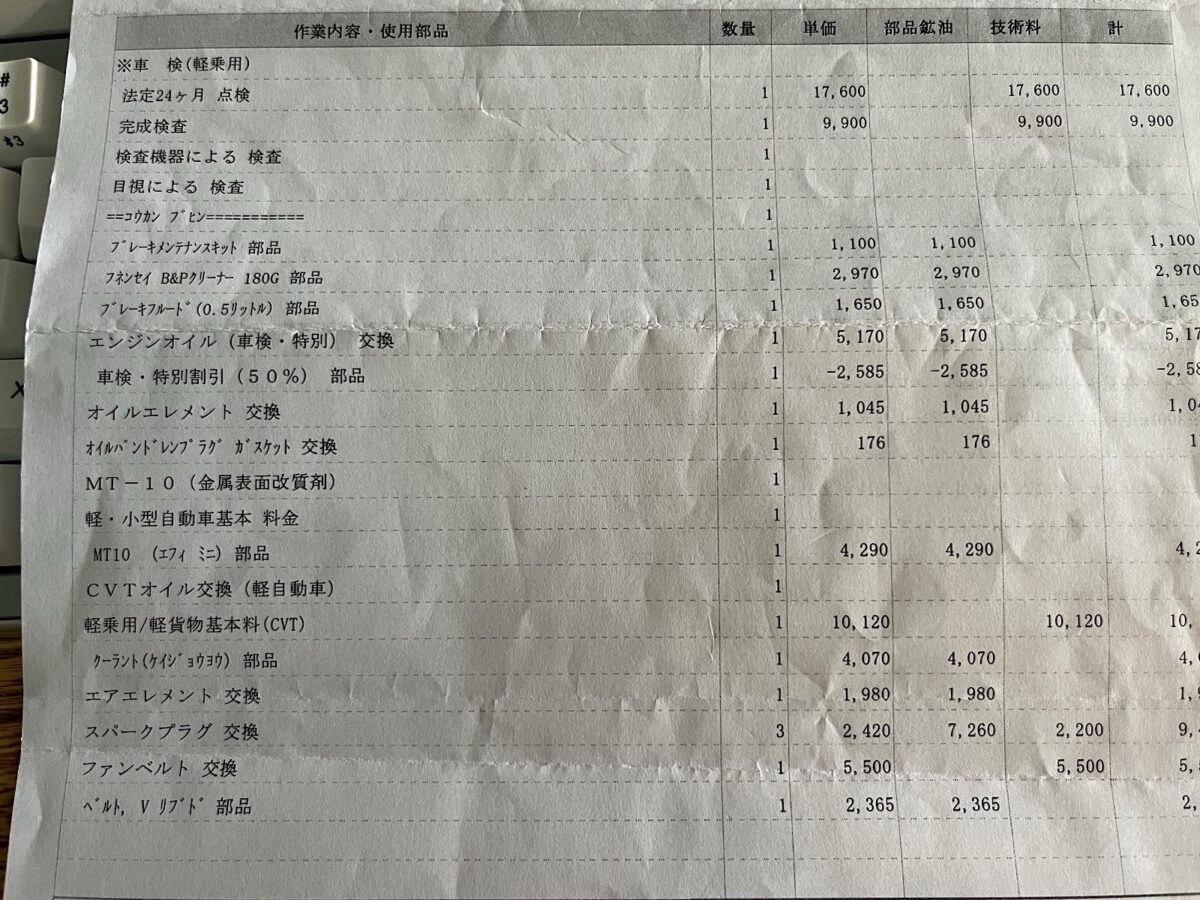 作業内容・使用部品 数量 単価 部品鉱油 技術料 計
※車 検(軽乗用)
法定24ヶ月 点検 1 17,600 17,600 17,600
完成検査 1 9,900 9,900 9,900
検査機器による 検査 1
目視による 検査 1
==コウカン ブヒン=========== 1
ブレーキメンテナンスキット 部品 1 1,100 1,100 1,100
フネンセイ B&Pクリーナー 180G 部品 1 2,970 2,970 2,970
ブレーキフルード(0.5リットル) 部品 1 1,650 1,650 1,65
エンジンオイル(車検・特別) 交換 1 5,170 5,170 5,17
車検・特別割引(50%) 部品 1 -2,585 -2,585 -2,58
オイルエレメント 交換 1 1,045 1,045 1,04
オイルパンドレンプラグ ガスケット 交換 1 176 176 1
MT-10(金属表面改質剤) 1
軽・小型自動車基本 料金 1
MT10 (エフィ ミニ) 部品 1 4,290 4,290 4,2
CVTオイル交換(軽自動車) 1
軽乗用/軽貨物基本料(CVT) 1 10,120 10,120 10,
クーラント(ケイジョウヨウ) 部品 1 4,070 4,070 4,0
エアエレメント 交換 1 1,980 1,980 1,9
スパークプラグ 交換 3 2,420 7,260 2,200 9,
ファンベルト 交換 1 5,500 5,500 5,
ベルト, V リブド 部品 1 2,365 2,365 2,
#
3
X